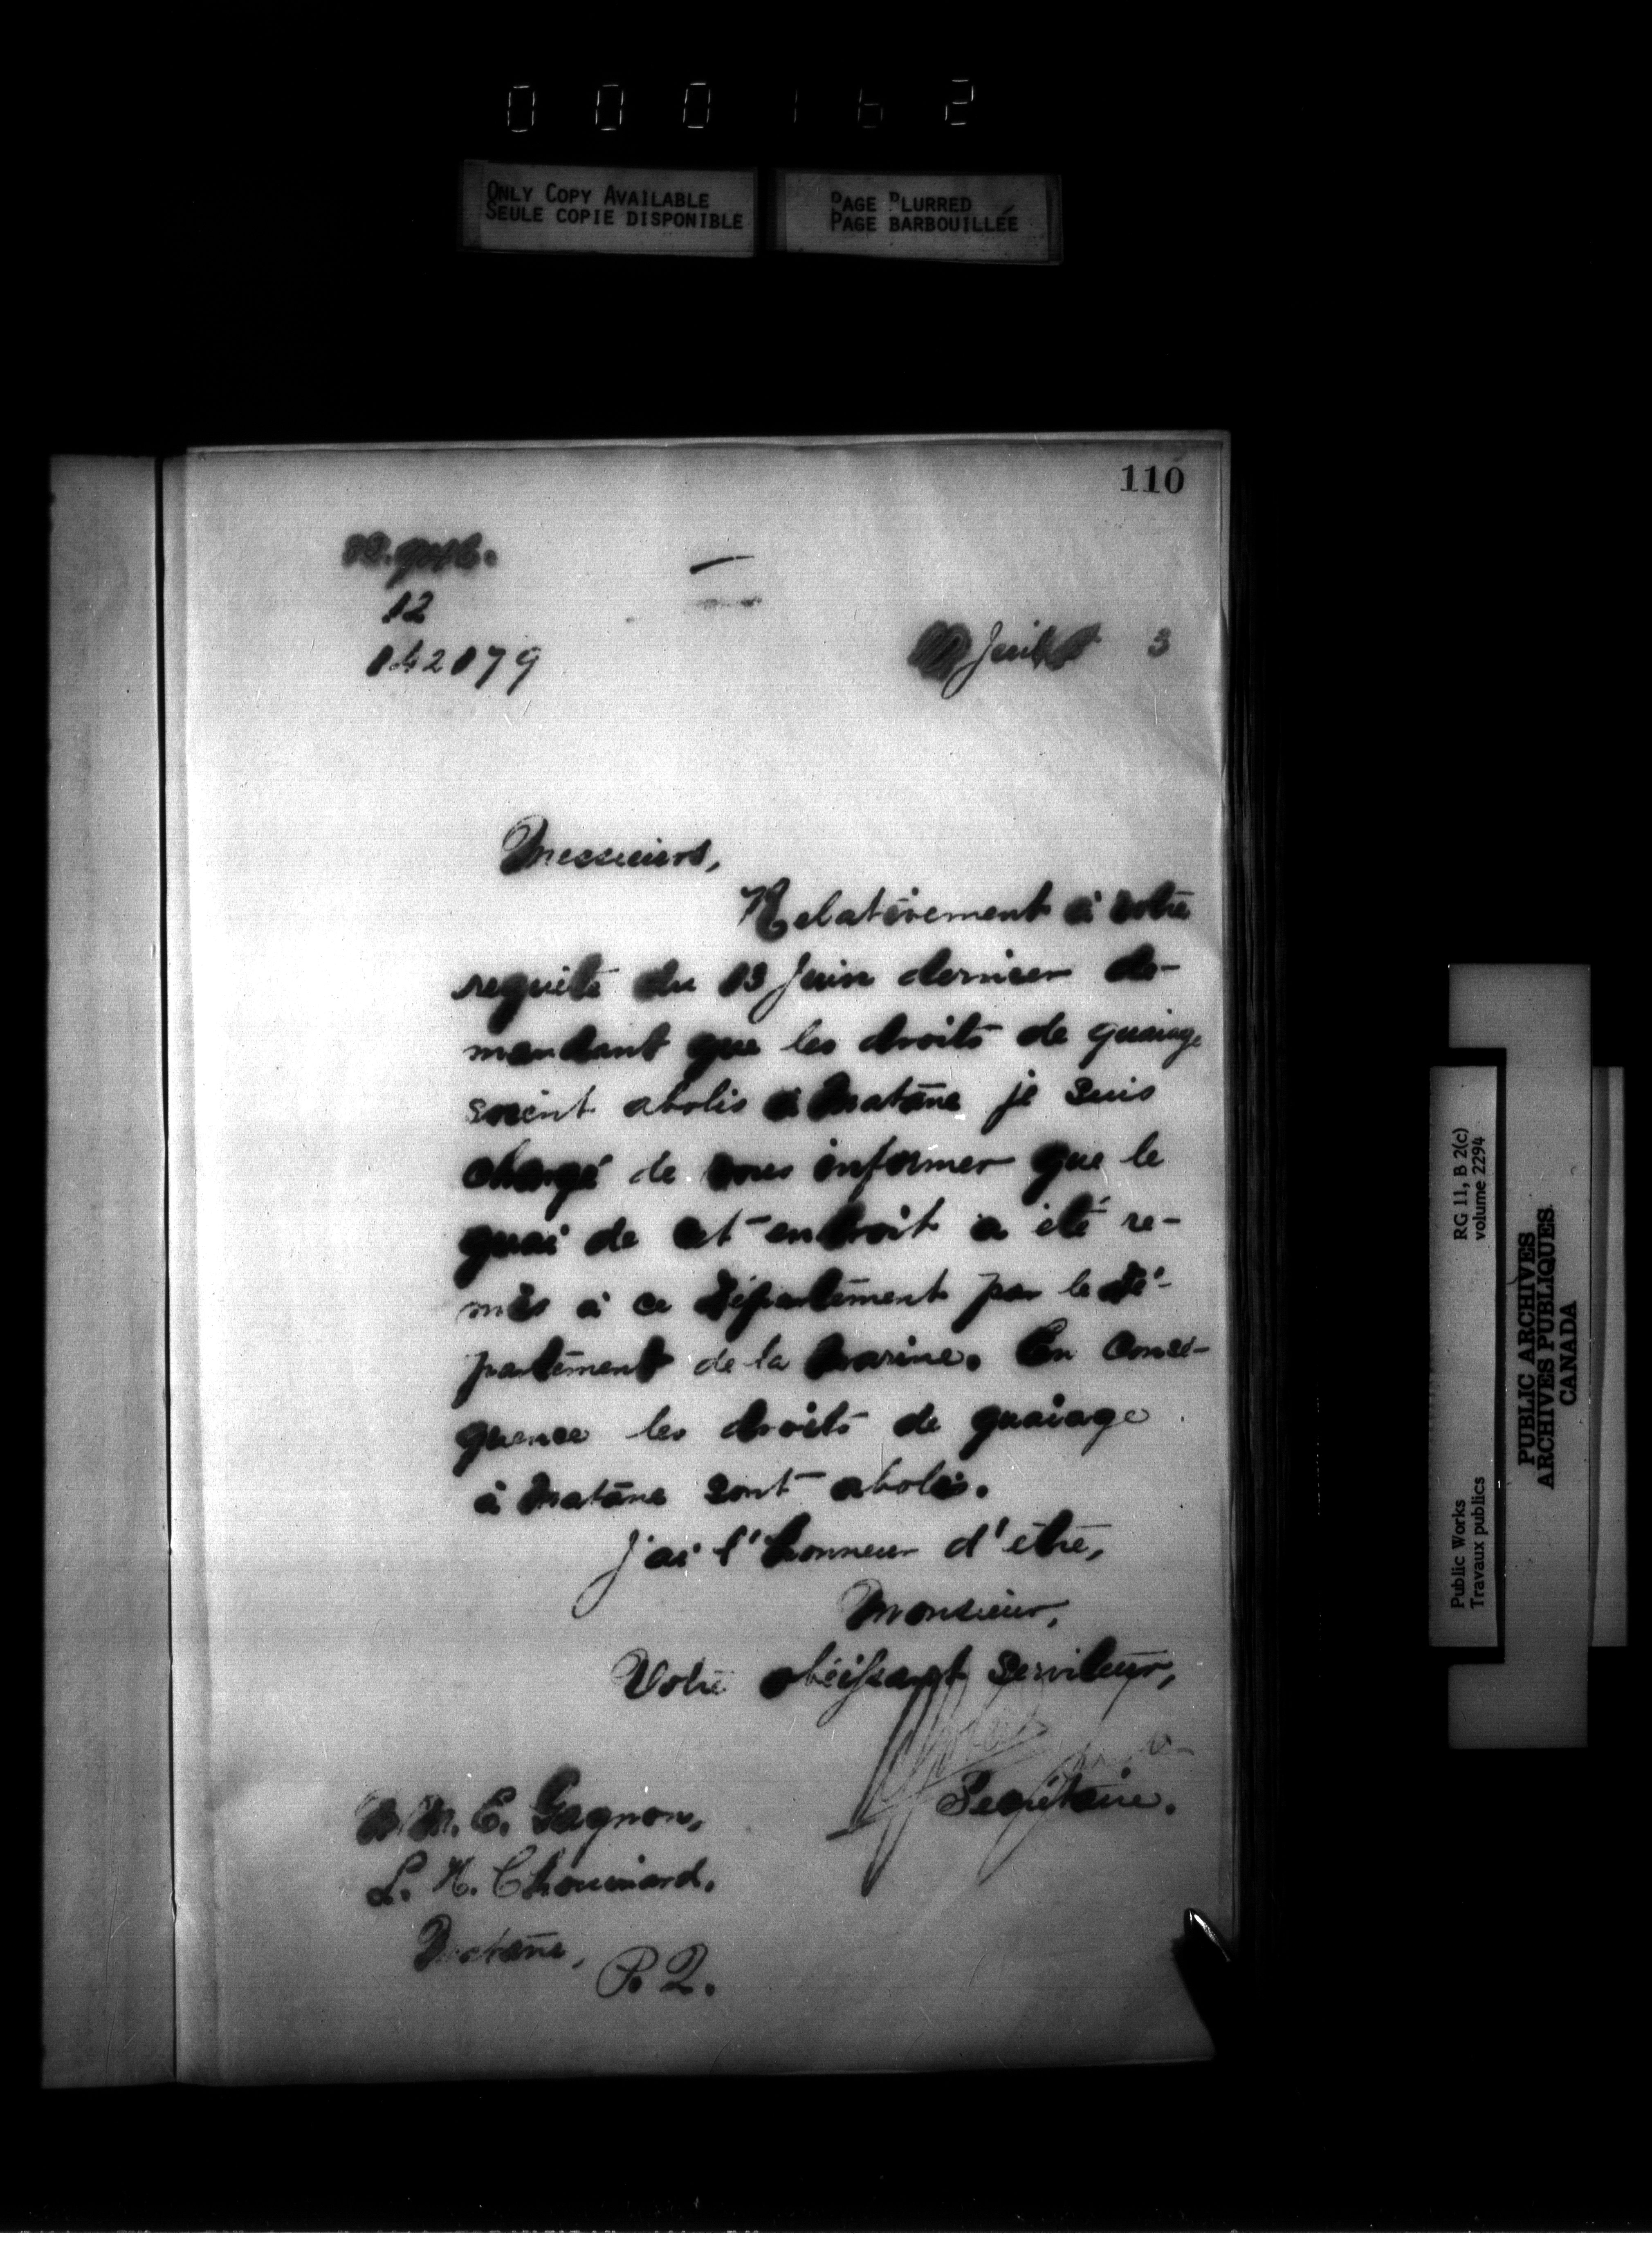 000162
ONLY COPY AVAILABLE
SEULE COPIE DISPONIBLE
PAGE BLURRED
PAGE BARBOUILLÉE
110
12
142079
Juillet 3
Messieurs,
Relativement à votre
requête du 13 Juin dernier de-
mandant que les droits de quaiage
soient abolis à Matane je suis
chargé de vous informer que le
quai de cet endroit a été re-
mis à ce Département par le Dé-
partement de la Marine. En consé-
quence les droits de quaiage
à Matane sont abolis.
J'ai l'honneur d'être,
Monsieur,
Votre obéissant serviteur,
Secrétaire.
M.M. E. Gagnon,
L. N. Chouinard.
Matane, P.Q.
RG 11, B 2(c)
volume 2294
Public Works
Travaux publics
PUBLIC ARCHIVES
ARCHIVES PUBLIQUES
CANADA